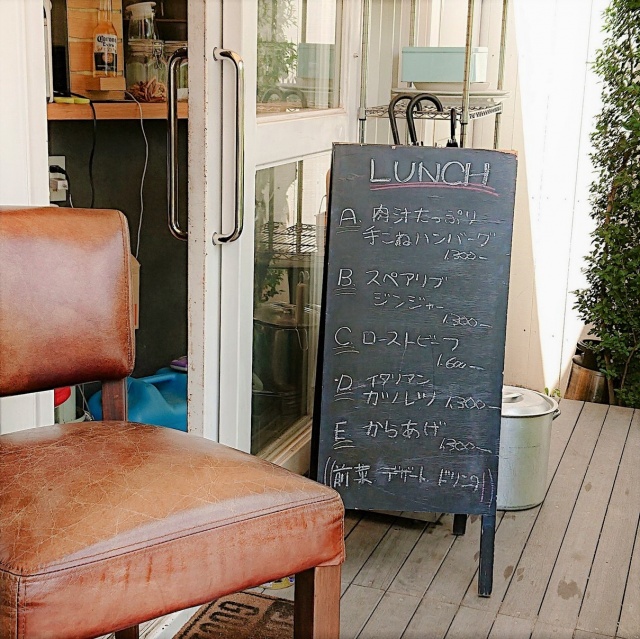 LUNCH
A. 肉汁たっぷり
手ごねハンバーグ
1,300-
B. スペアリブ
ジンジャー
1,300-
C. ローストビーフ
1,600-
D. イタリアン
カツレツ 1,300-
E からあげ
1,300-
(前菜 デザート ドリンク)
Corona